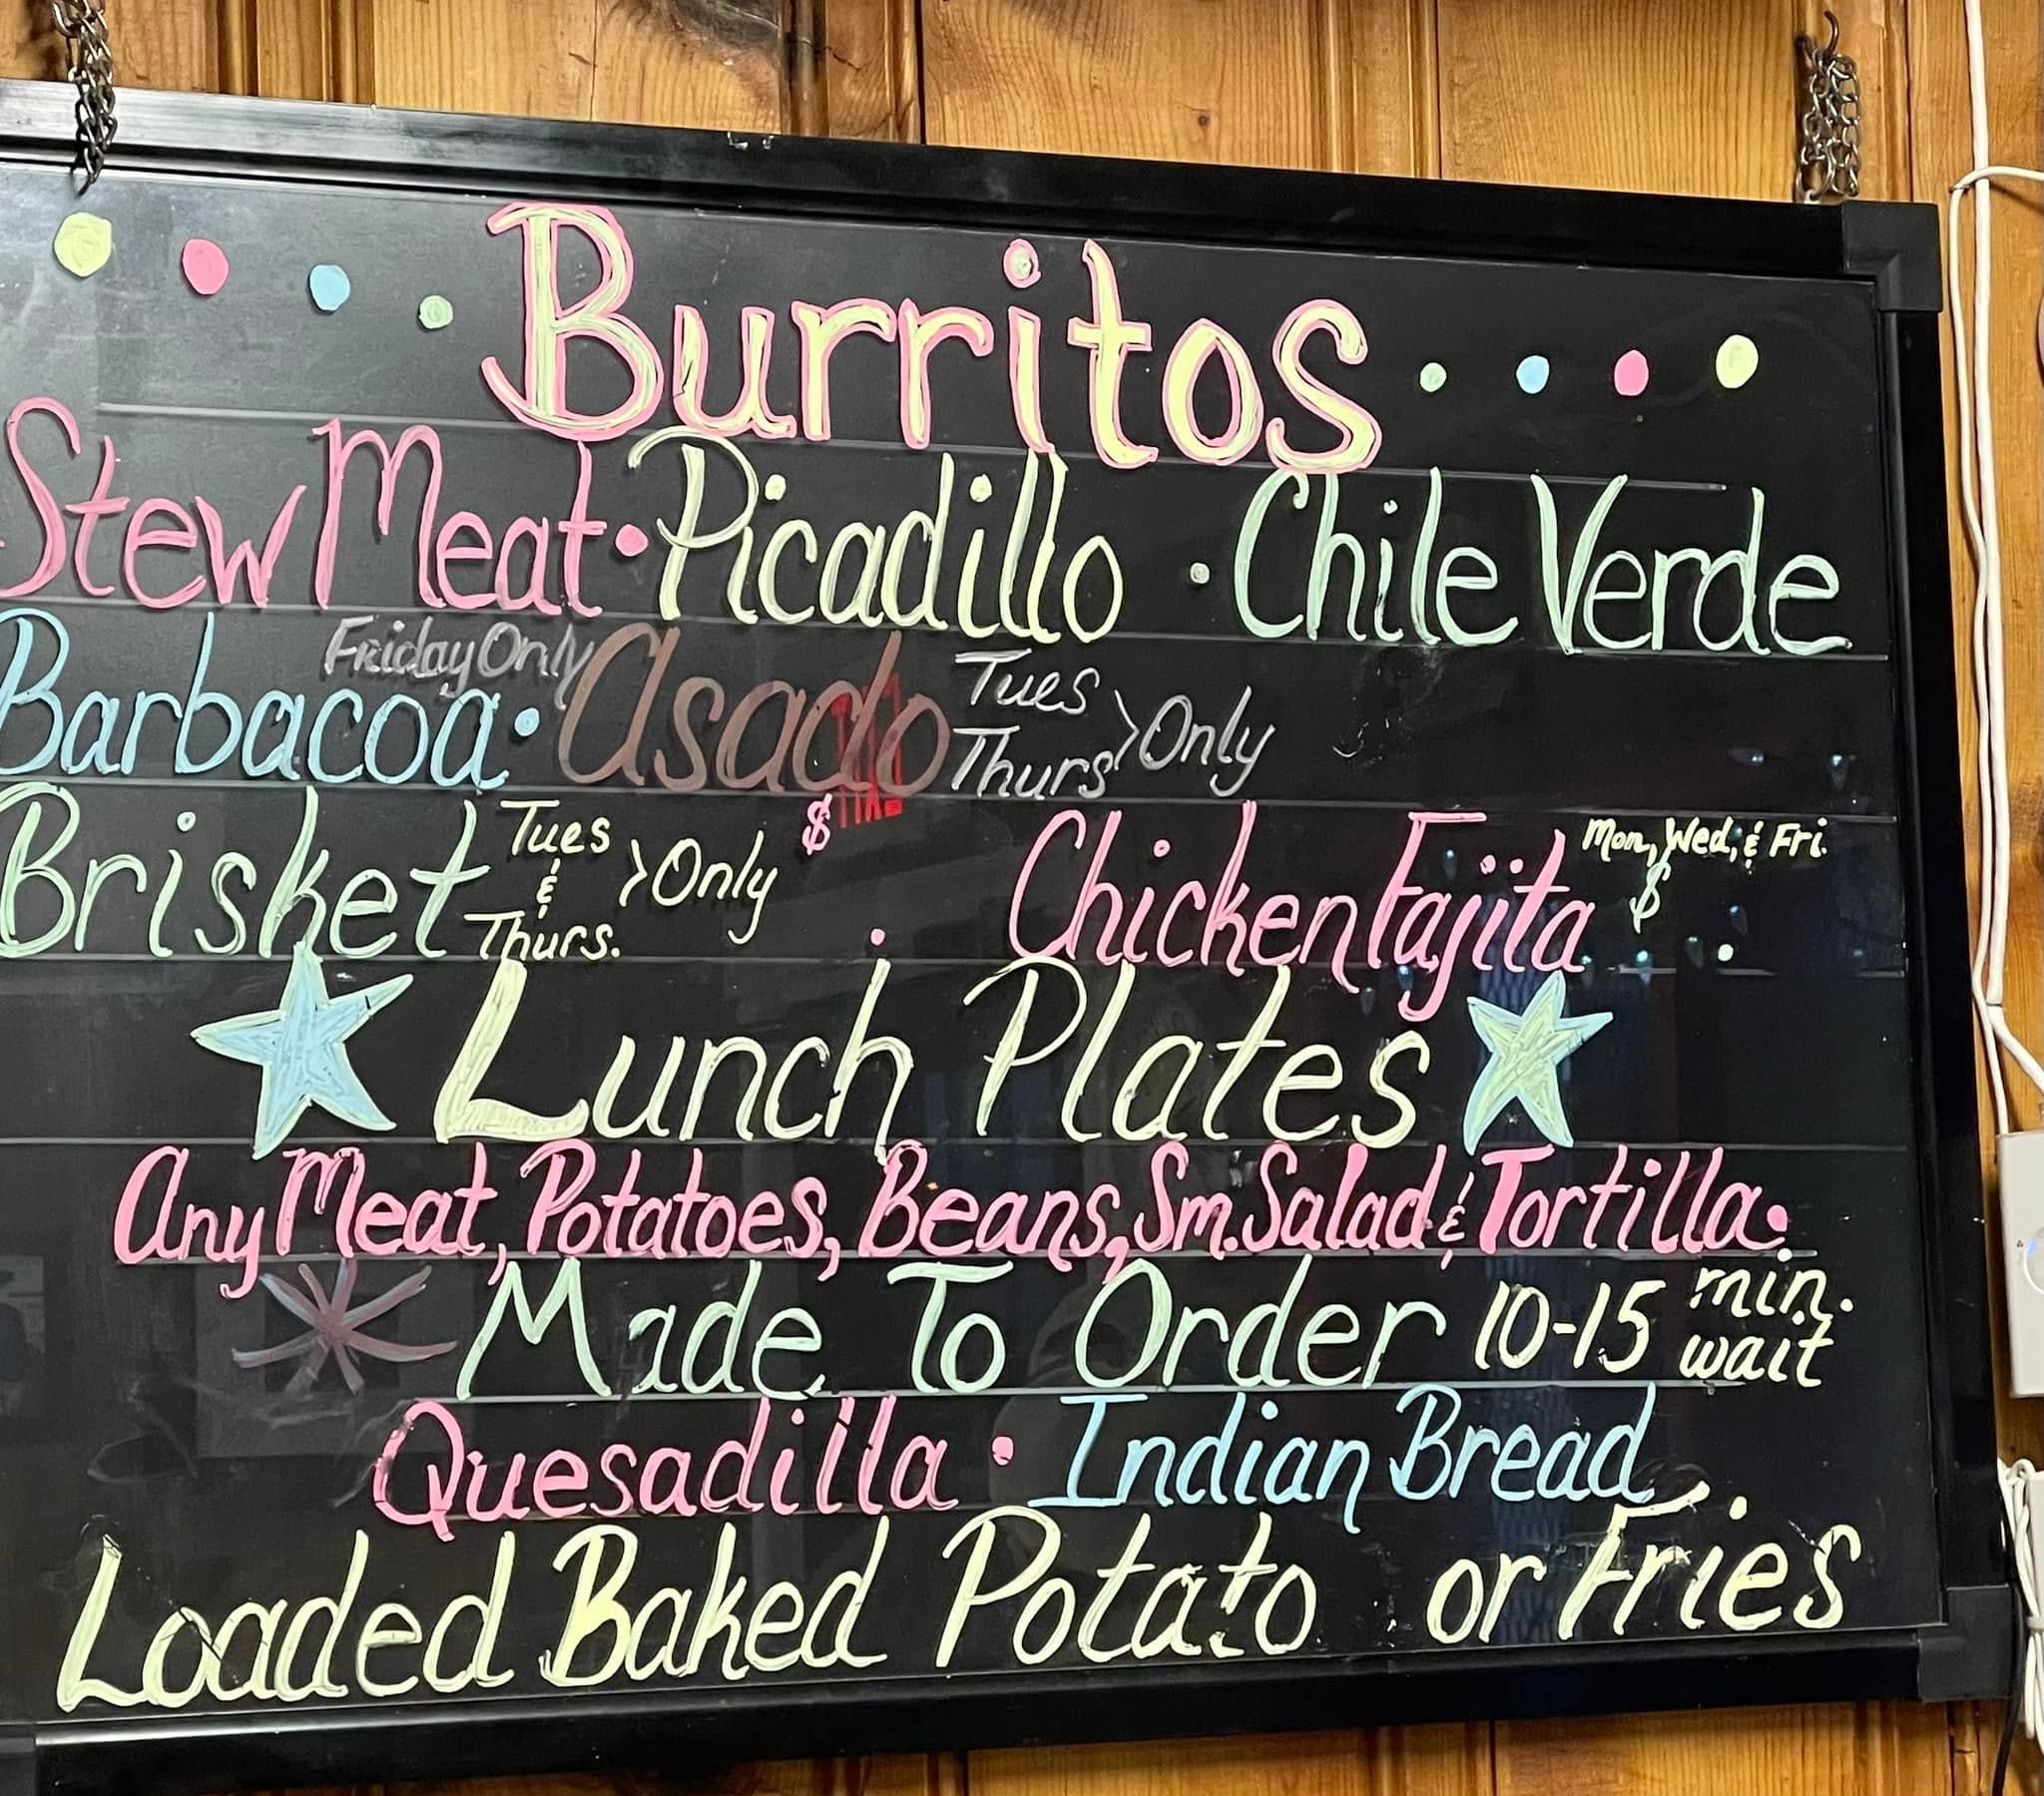 Burritos
Stew Meat · Picadillo · Chile Verde
Barbacoa Friday Only · Asado Tues Thurs > Only
Brisket Tues & Thurs. > Only $ · Chicken Fajita Mon, Wed, & Fri. $ ·
Lunch Plates
Any Meat, Potatoes, Beans, Sm. Salad & Tortilla.
Made To Order 10-15 min. wait
Quesadilla · Indian Bread
Loaded Baked Potato or Fries